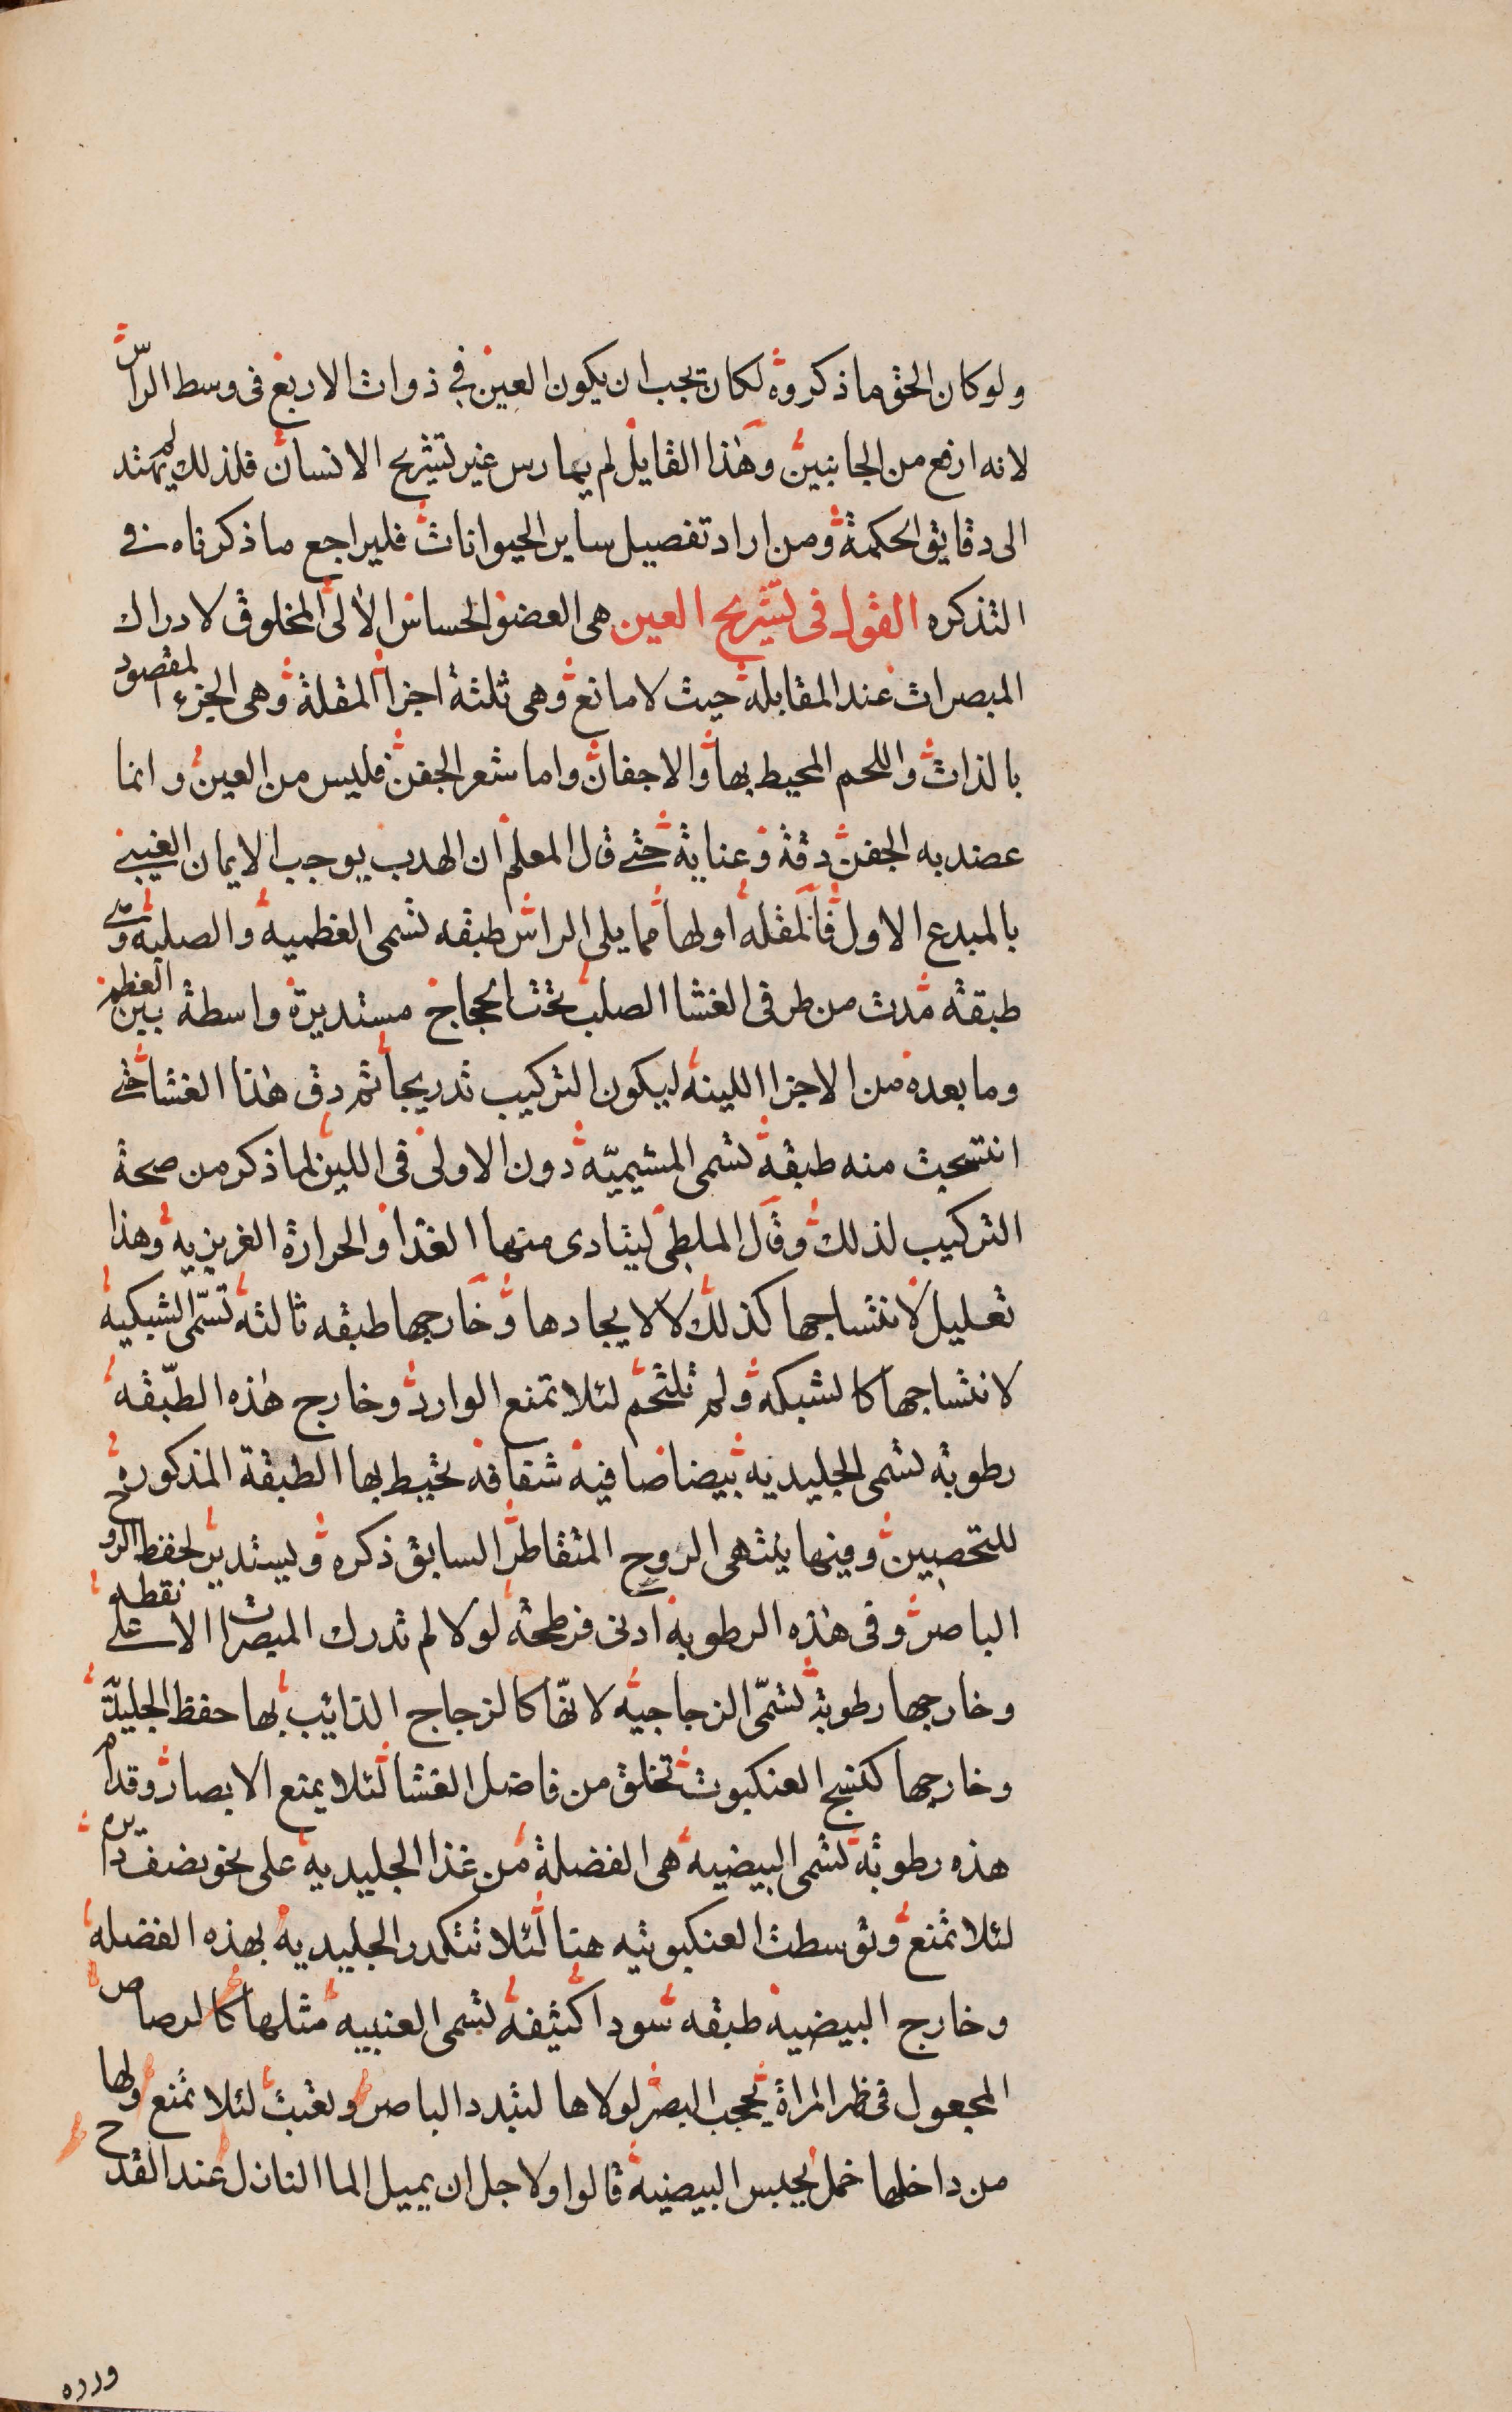 ولو كان الحق ما ذكروه لكان يجب ان يكون العين في ذوات الاربع فى وسط الراس
لانه ارفع من الجانبين وهذا القايل لم يمارس غير تشريح الانسان فلذلك لم يهتد
الى دقايق الحكمة ومن اراد تفصيل ساير الحيوانات فليراجع ما ذكرناه في
التذكره القول فى تشريح العين هى العضو الحساس الالى المخلوق لادراك
المبصرات عند المقابلة حيث لا مانع وهى ثلثة اجزا المقلة وهى الجزء المقصود
بالذات واللحم المحيط بها والاجفان واما شعر الجفن فليس من العين وانما
عضد به الجفن دقة وعناية حتى قال المعلم ان الهدب يوجب الايمان الغيبي
بالمبدع الاول فالمقله اولها مما يلى الراس طبقه تسمى العظميه والصلبه وهى
طبقة مدت من طرفى الغشا الصلب تحت الحجاج مستديرة واسطة بين العظم
وما بعده من الاجزا اللينة ليكون التركيب تدريجا ثم دق هذا الغشا حتى
انتسجت منه طبقة تسمى المشيميّه دون الاولى فى اللين لما ذكر من صحة
التركيب لذلك وقال الملطى ليتادى منها الغذا والحرارة الغريزيه وهذا
تعليل لانتساجها كذلك لا لايجادها وخارجها طبقه ثالثة تسمّى الشبكيه
لانتساجها كالشبكه ولم تلتحم لئلا تمنع الوارد وخارج هذه الطبقه
رطوبة تسمى الجليديه بيضا صافية شفافة تحيط بها الطبقة المذكوره
للتحصين وفيها ينتهى الروح المتقاطر السابق ذكره ويستدير لحفظ الروح
الباصر وفى هذه الرطوبة ادنى فرطحة لولا لم تدرك المبصرات الا على نقطه
وخارجها رطوبة تسمّى الزجاجيه لانّها كالزجاج الذائب بها حفظ الجليديّة
وخارجها كنسج العنكبوت تخلق من فاضل الغشا لئلا يمنع الابصار وقدام
هذه رطوبة تسمى البيضيه هى الفضلة من غذا الجليديه على نحو نصف دايره
لئلا تمنع وتوسطت العنكبوتيه هنا لئلا تتكدر الجليديه بهذه الفضله
وخارج البيضية طبقه سودا كثيفة تسمى العنبيه مثلها كالرصاص
المجعول فى ظهر المراة يحجب البصر لولاها لتبدد الباصر وثقبت لئلا تمنع ولها
من داخلها خمل يحبس البيضية قالوا ولاجل ان يميل الما النازل عند القدح
ورده